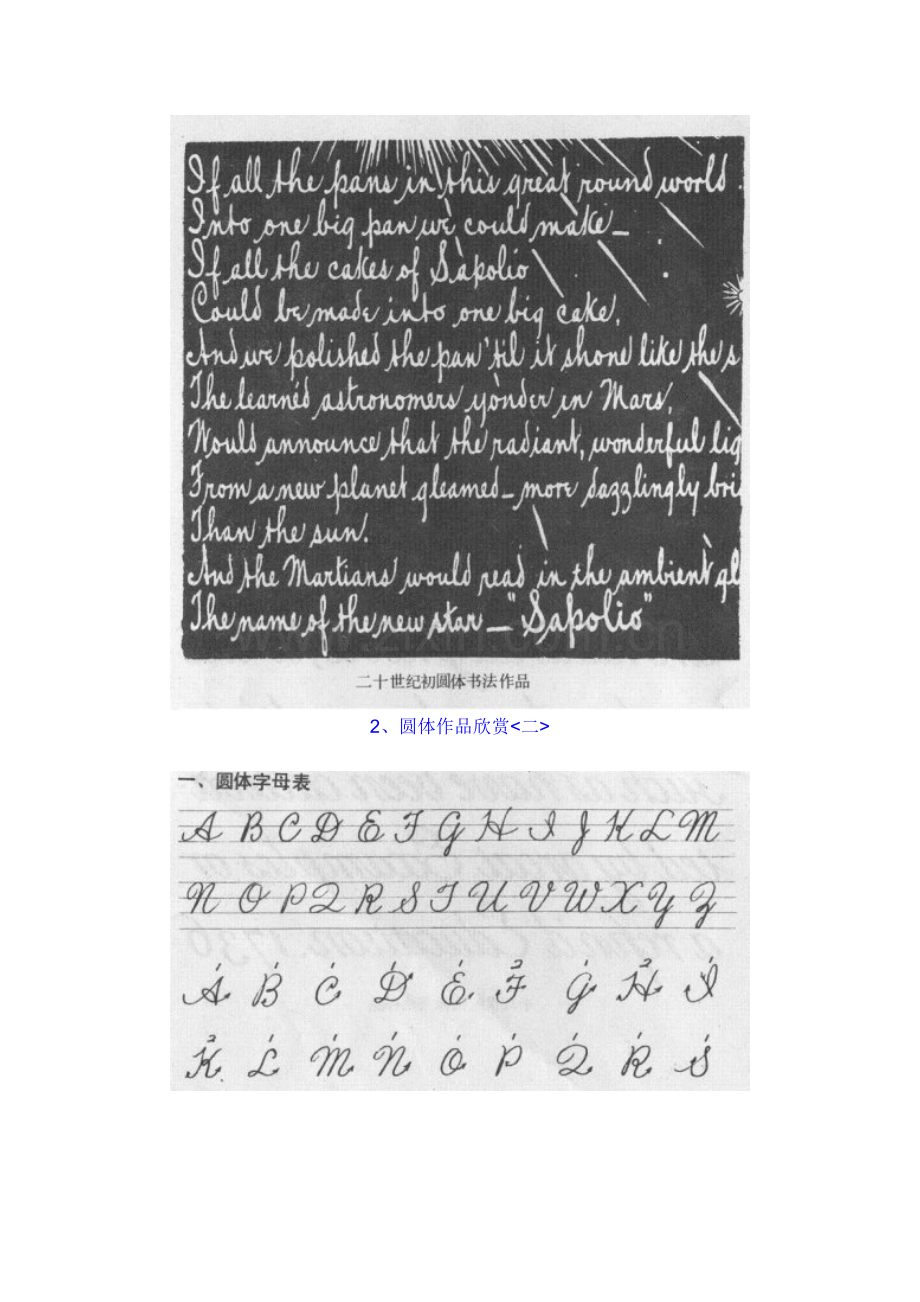 If all the pans in this great round world
Into one big pan we could make—
If all the cakes of Sapolio
Could be made into one big cake,
And we polished the pan 'til it shone like the s
The learned astronomers yonder in Mars,
Would announce that the radiant, wonderful lig
From a new planet gleamed—more dazzlingly bri
Than the sun.
And the Martians would read in the ambient gl
The name of the new star—"Sapolio"
二十世纪初圆体书法作品
2、圆体作品欣赏<二>
一、圆体字母表
A B C D E F G H I J K L M
N O P Q R S T U V W X Y Z
A B C D E F G H I
K L M N O P Q R S